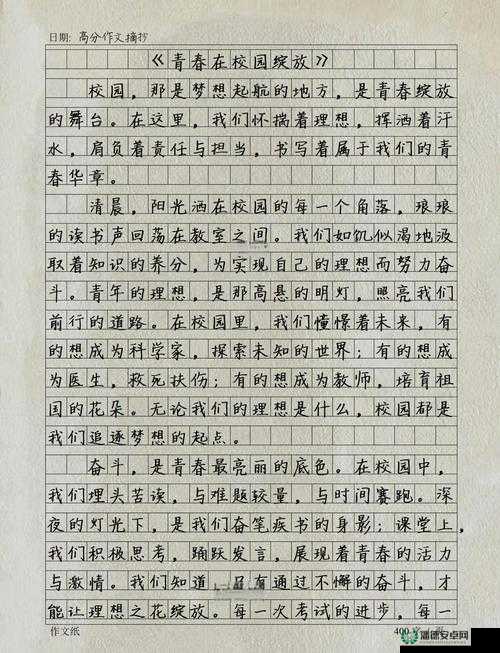 日期：高分作文摘抄
《青春在校园绽放》
校园，那是梦想起航的地方，是青春绽放
的舞台。在这里，我们怀揣着理想，挥洒着汗
水，肩负着责任与担当，书写着属于我们的青
春华章。
清晨，阳光洒在校园的每一个角落，琅琅
的读书声回荡在教室之间。我们如饥似渴地汲
取着知识的养分，为实现自己的理想而努力奋
斗。青年的理想，是那高悬的明灯，照亮我们
前行的道路。在校园里，我们憧憬着未来，有
的想成为科学家，探索未知的世界；有的想成
为医生，救死扶伤；有的想成为教师，培育祖
国的花朵。无论我们的理想是什么，校园都是
我们追逐梦想的起点。
奋斗，是青春最亮丽的底色。在校园中，
我们埋头苦读，与难题较量，与时间赛跑。深
夜的灯光下，是我们奋笔疾书的身影；课堂上，
我们积极思考，踊跃发言，展现着青春的活力
与激情。我们知道，只有通过不懈的奋斗，才
能让理想之花绽放。每一次考试的进步，每一
作文纸
400
潘德安卓网